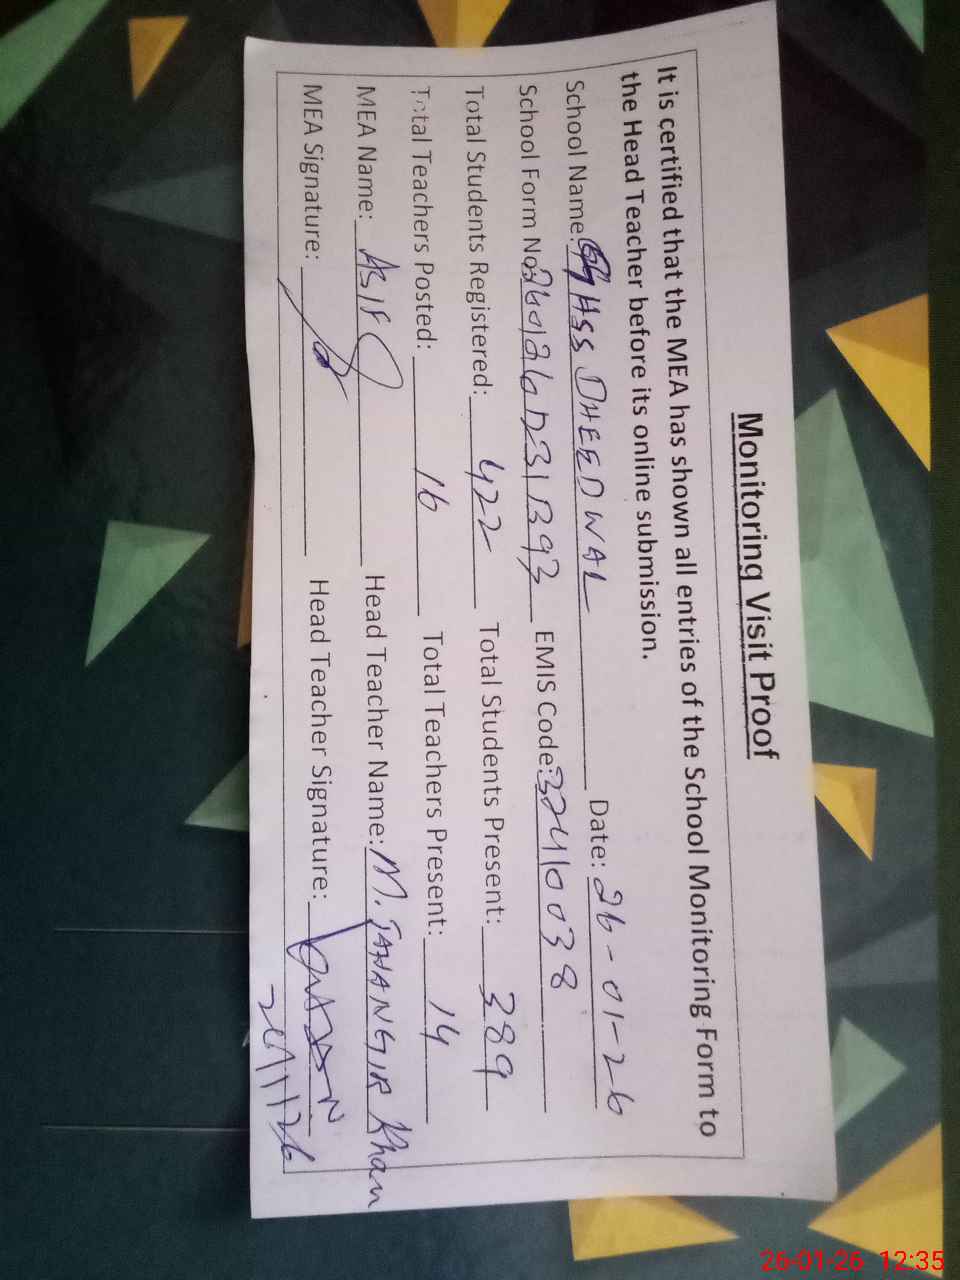 Monitoring Visit Proof
It is certified that the MEA has shown all entries of the School Monitoring Form to
the Head Teacher before its online submission.
School Name: GHSS DHEEDWAL Date: 26-01-26
School Form No: EMIS Code: 37410038
Total Students Registered: 422 Total Students Present: 389
Total Teachers Posted: 16 Total Teachers Present: 14
MEA Name: ASIF Head Teacher Name: M. JAHANGIR Khan
MEA Signature: Head Teacher Signature:
26/1/26
26-01-26 12:35